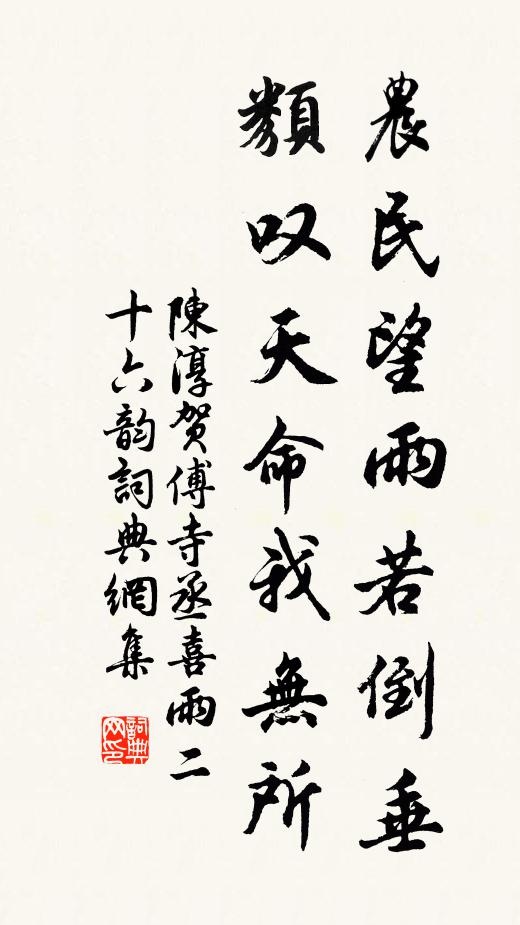 農民望雨若倒垂
纇叹天命我無所
陳淳賀傅寺丞喜雨二
十六韵詞典網集
詞典
网印